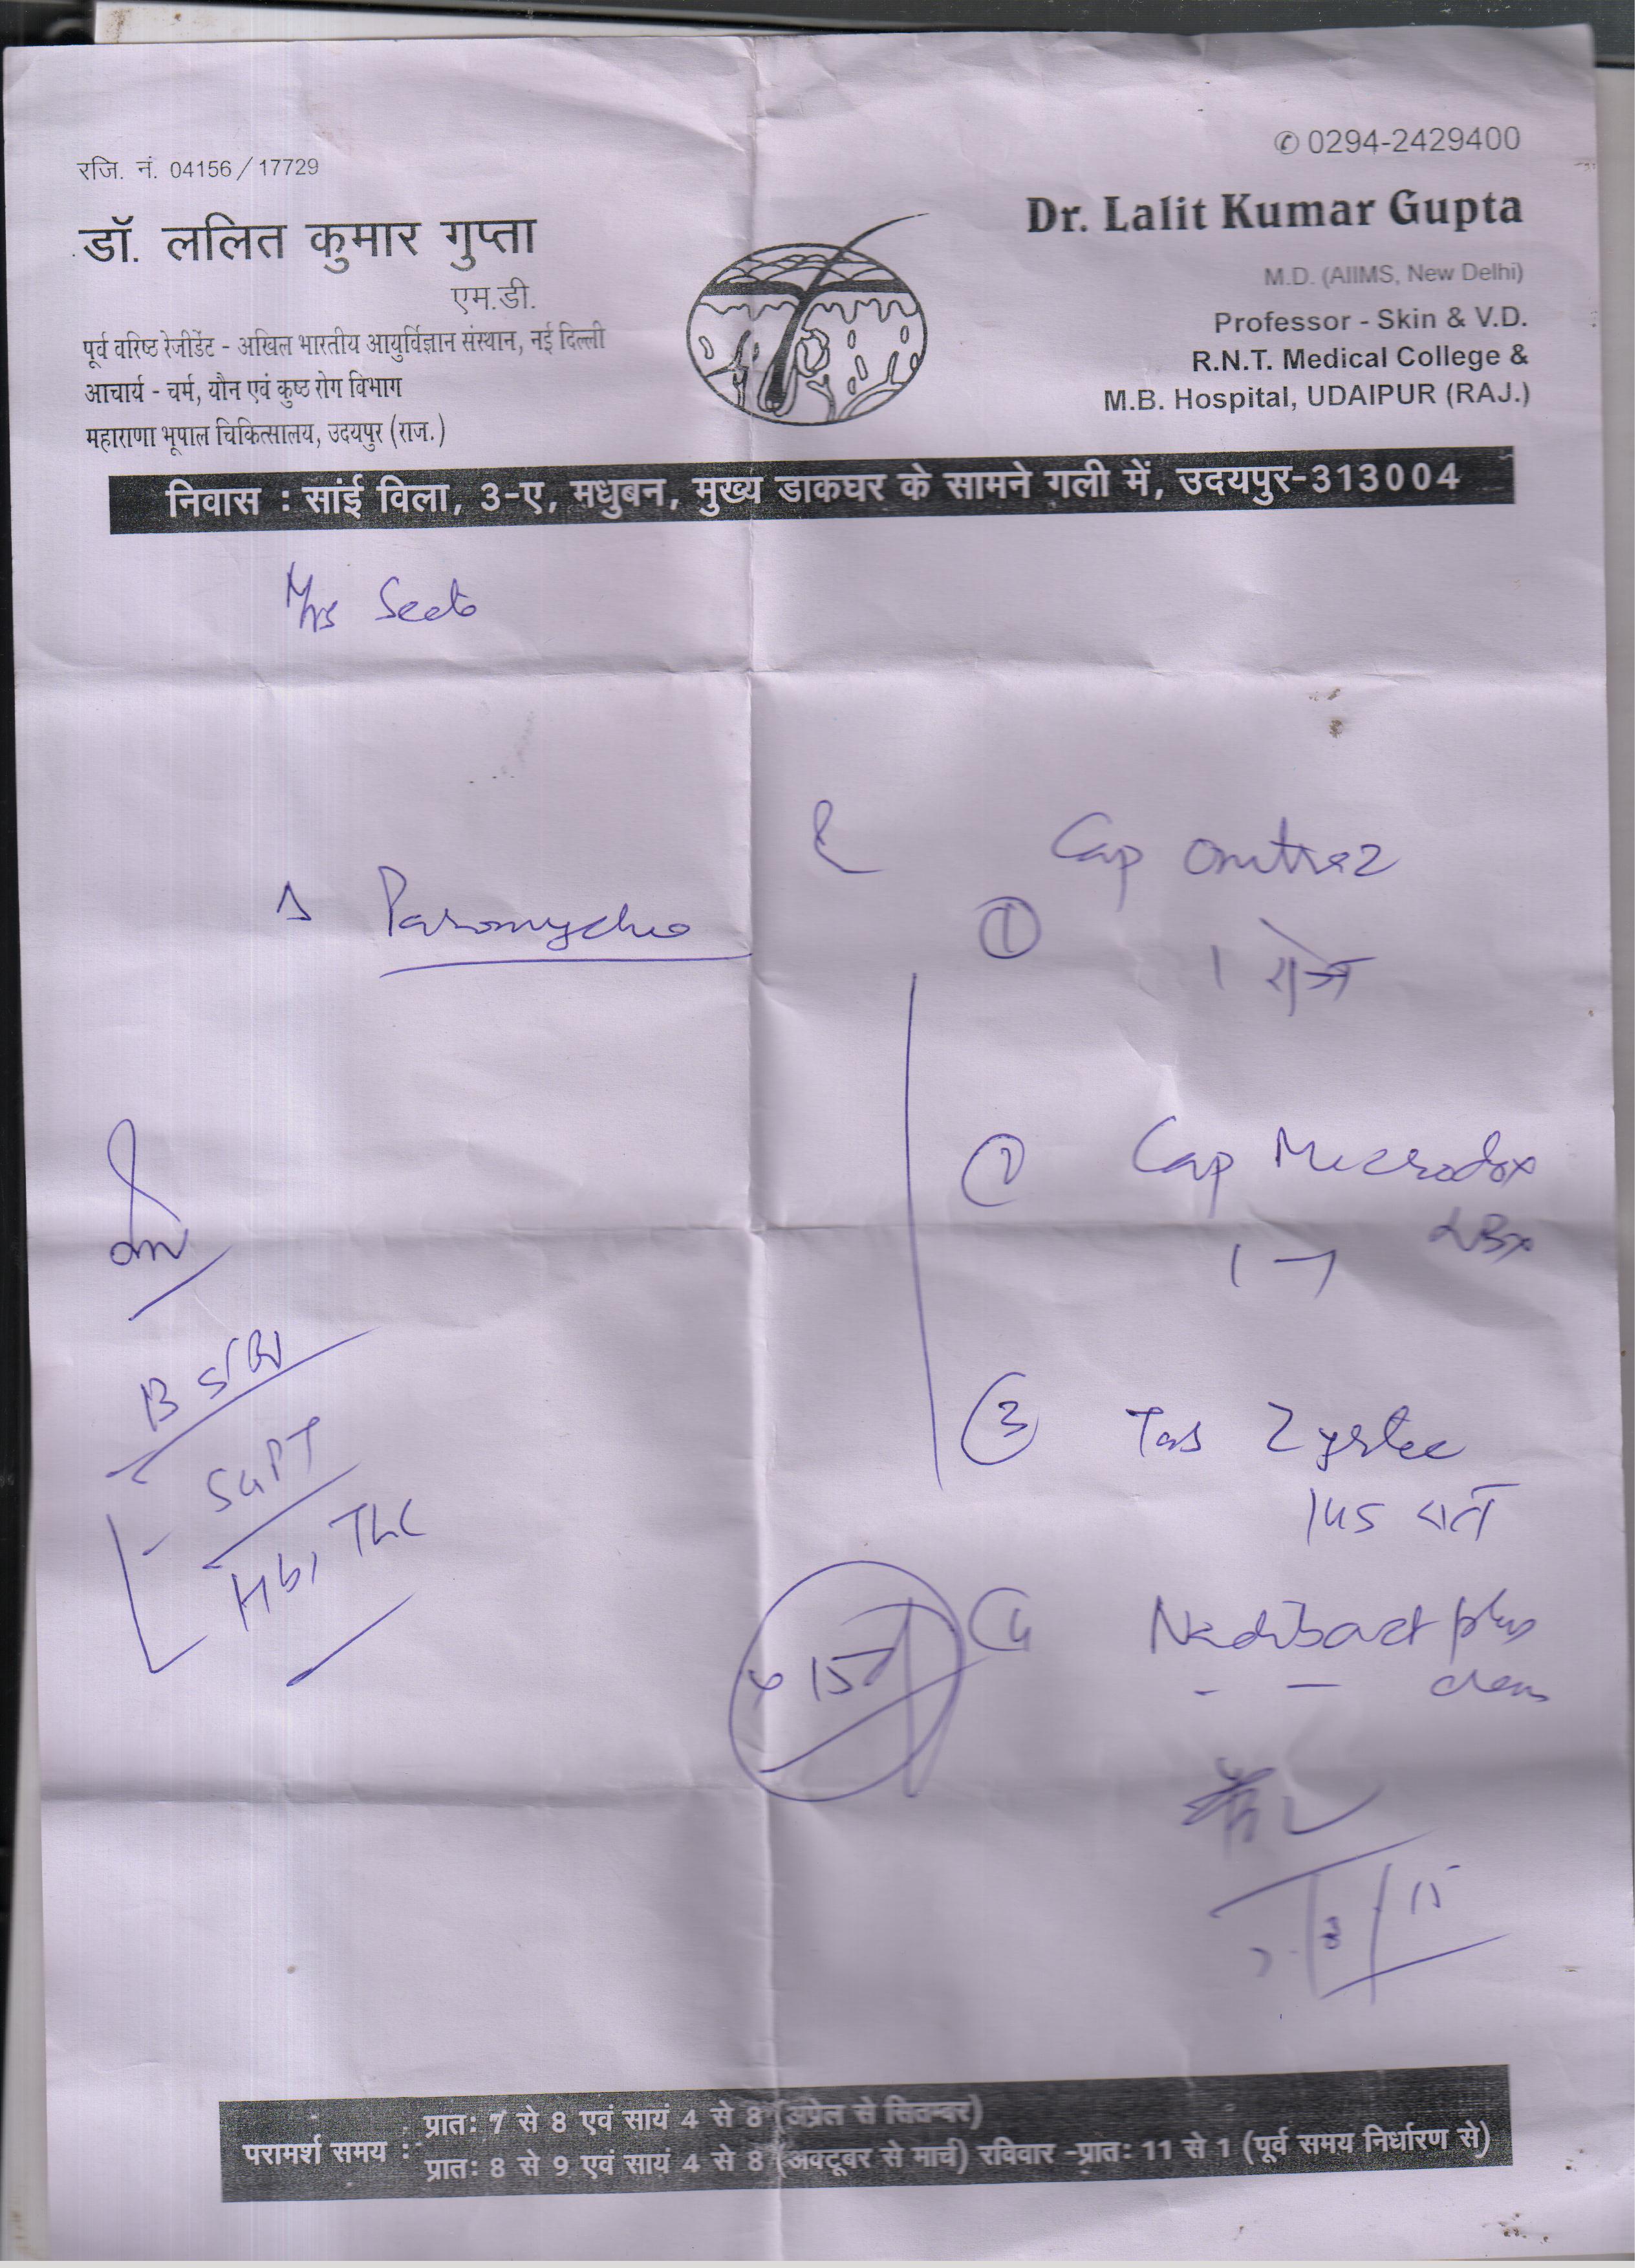 रजि. नं. 04156/17729
✆ 0294-2429400
डॉ. ललित कुमार गुप्ता
एम.डी.
पूर्व वरिष्ठ रेजीडेंट - अखिल भारतीय आयुर्विज्ञान संस्थान, नई दिल्ली
आचार्य - चर्म, यौन एवं कुष्ठ रोग विभाग
महाराणा भूपाल चिकित्सालय, उदयपुर (राज.)
Dr. Lalit Kumar Gupta
M.D. (AIIMS, New Delhi)
Professor - Skin & V.D.
R.N.T. Medical College &
M.B. Hospital, UDAIPUR (RAJ.)
निवास : सांई विला, 3-ए, मधुबन, मुख्य डाकघर के सामने गली में, उदयपुर-313004
Mrs
Cap
①
1 रोज
Cap Microdox
LBx
1 - 1
③ Tab Zyrtec
रात
plus
15d
B
SGPT
Hb, TLC
8/15
परामर्श समय :
प्रातः 7 से 8 एवं सायं 4 से 8 (अप्रेल से सितम्बर)
प्रातः 8 से 9 एवं सायं 4 से 8 (अक्टूबर से मार्च) रविवार -प्रातः 11 से 1 (पूर्व समय निर्धारण से)